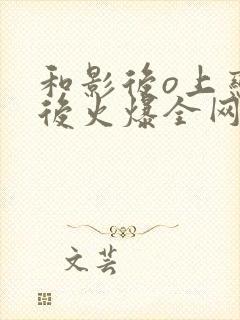 和影後o上恋
後火爆全网
文芸